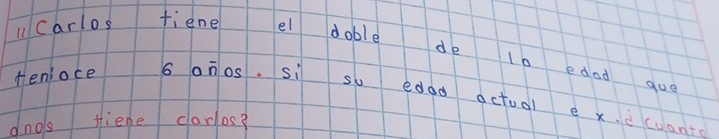 "Carlos tiene el doble de la edad que
teniace 6 años. si su edad actual e x. ¿cuants
anos tiene carlos?